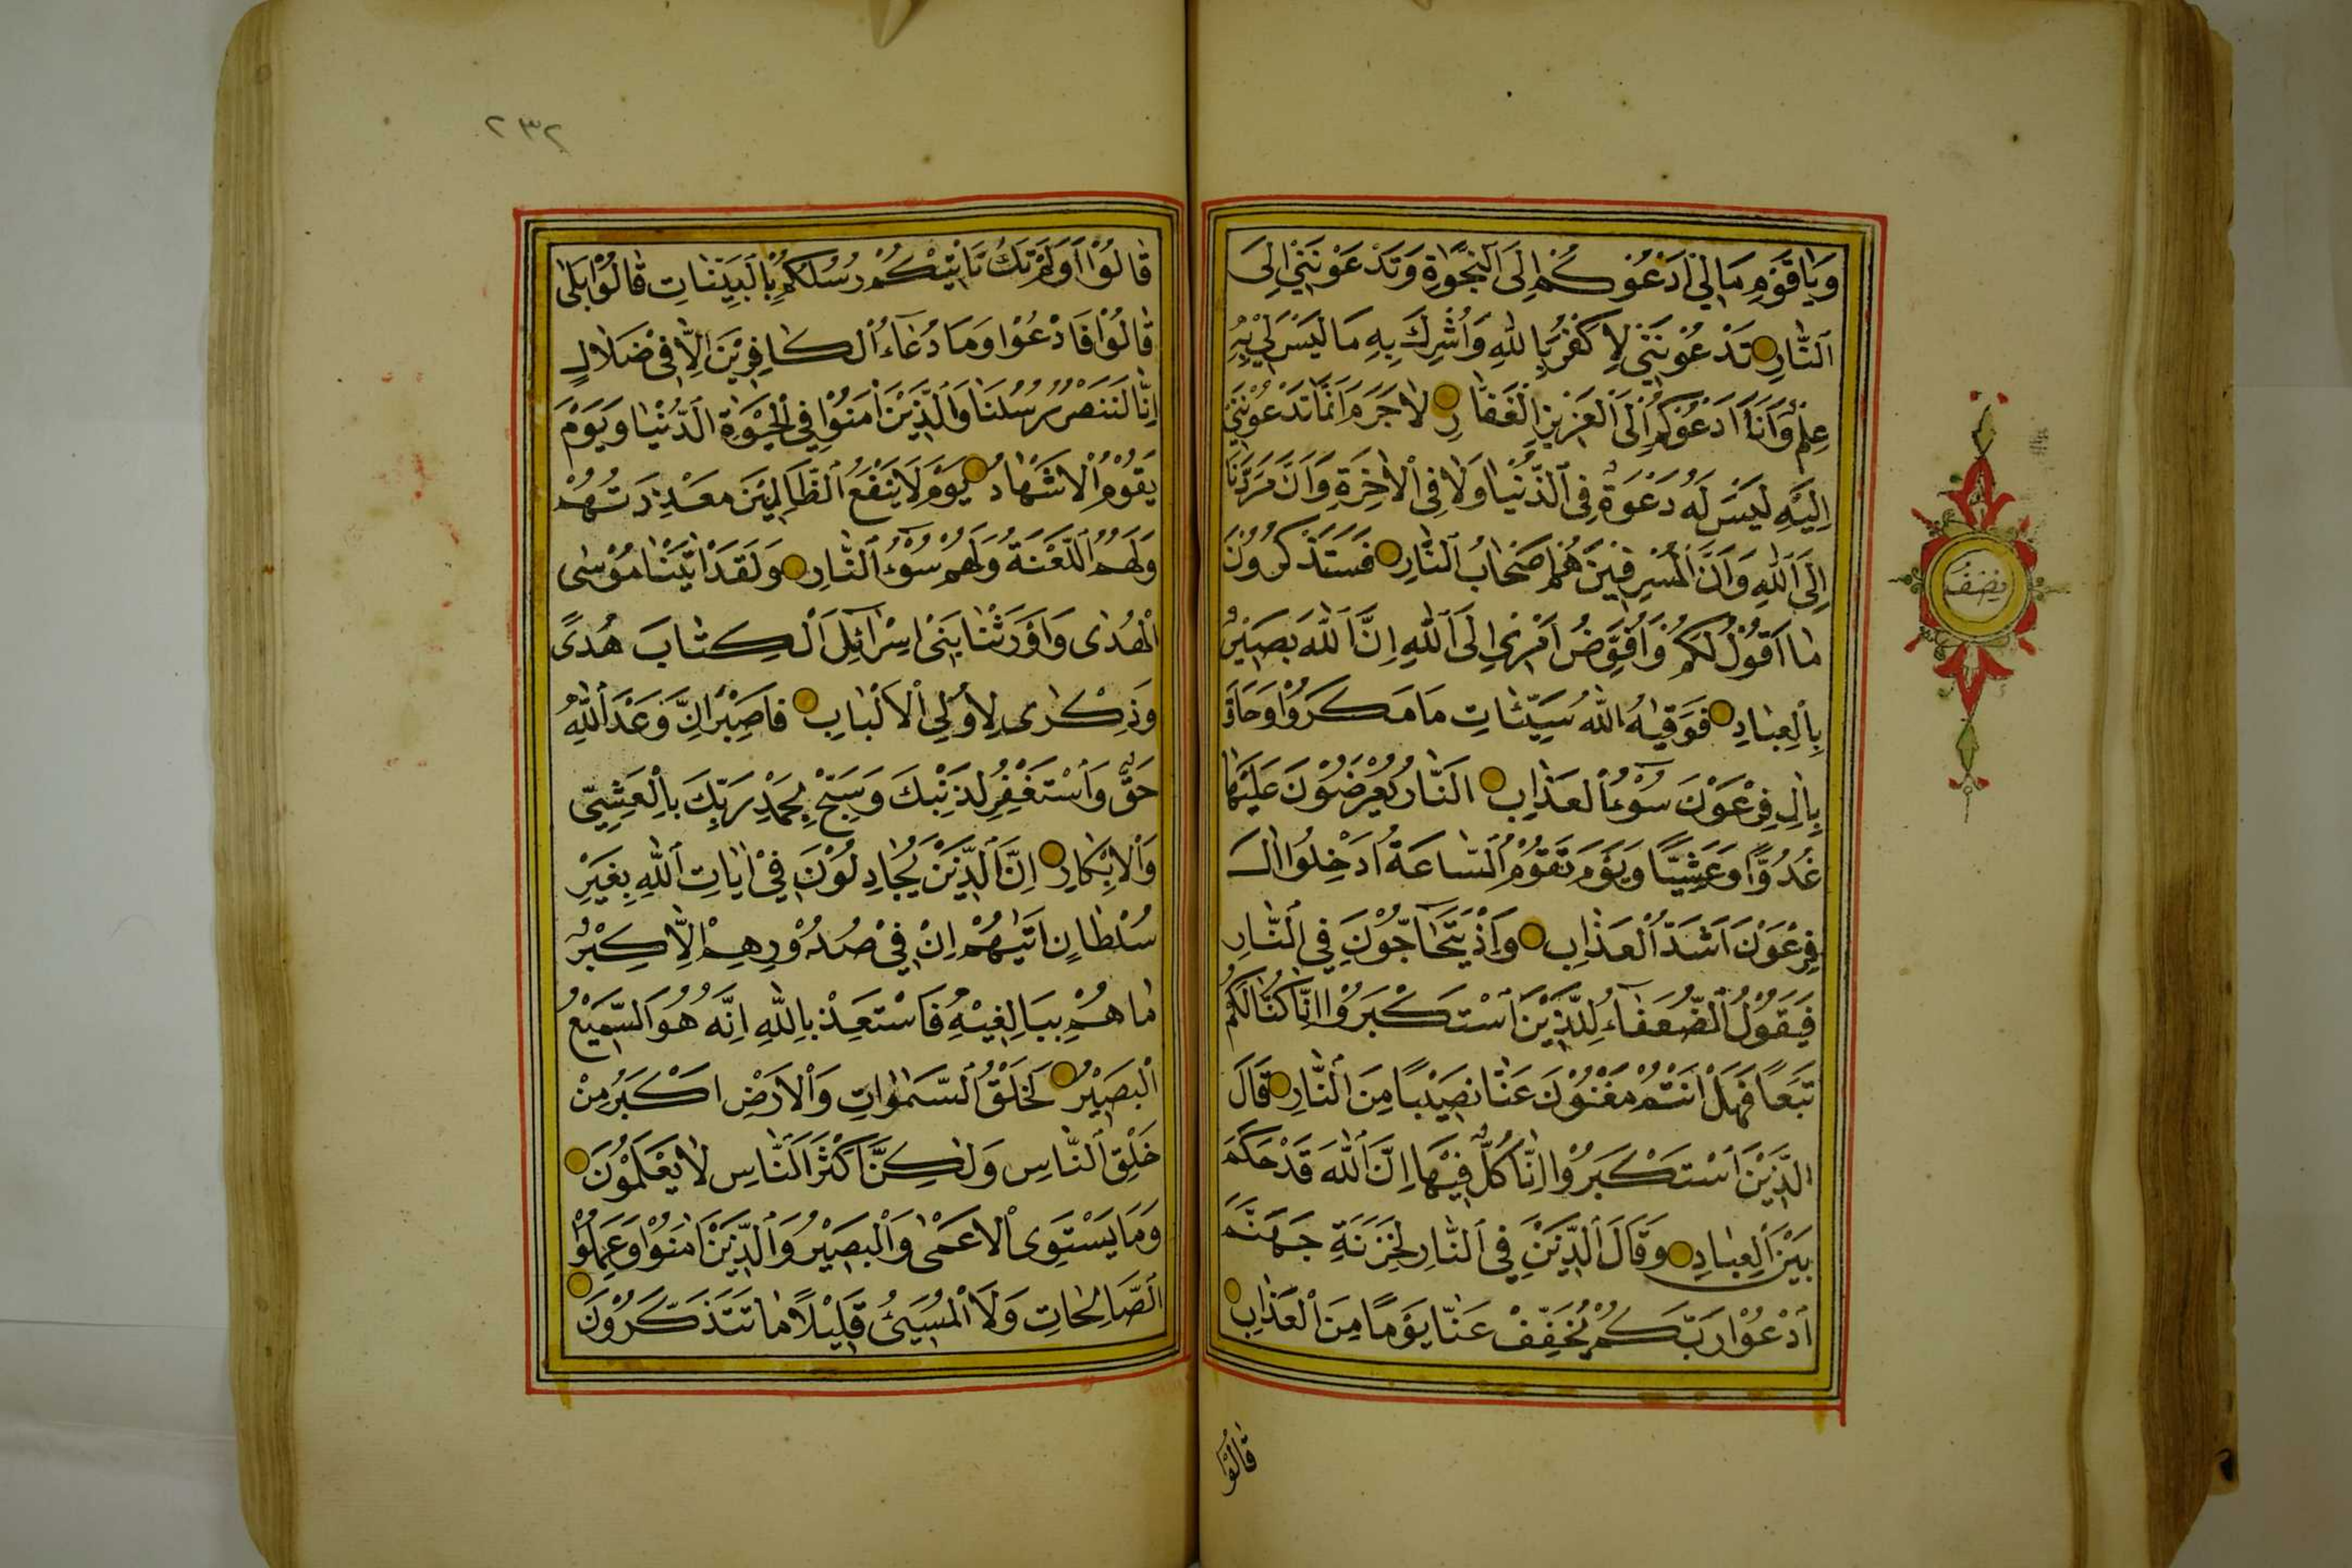 وَيَا قَوْمِ مَا لِي أَدْعُوكُمْ إِلَى ٱلنَّجٰوةِ وَتَدْعُونَنِي إِلَى
ٱلنَّارِ تَدْعُونَنِي لِأَكْفُرَ بِاللهِ وَأُشْرِكَ بِهِ مَا لَيْسَ لِي بِهِ
عِلْمٌ وَأَنَا۬ أَدْعُوكُمْ إِلَى ٱلْعَزِيزِ ٱلْغَفَّارِ لَا جَرَمَ أَنَّمَا تَدْعُونَنِي
إِلَيْهِ لَيْسَ لَهُ دَعْوَةٌ فِي ٱلدُّنْيَا وَلَا فِي ٱلْاٰخِرَةِ وَأَنَّ مَرَدَّنَا
إِلَى ٱللهِ وَأَنَّ ٱلْمُسْرِفِينَ هُمْ أَصْحَابُ ٱلنَّارِ فَسَتَذْكُرُونَ
مَا أَقُولُ لَكُمْ وَأُفَوِّضُ أَمْرِي إِلَى ٱللهِ إِنَّ ٱللهَ بَصِيرٌ
بِٱلْعِبَادِ فَوَقٰيهُ ٱللهُ سَيِّئَاتِ مَا مَكَرُوا وَحَاقَ
بِاٰلِ فِرْعَوْنَ سُوءُ ٱلْعَذَابِ ٱلنَّارُ يُعْرَضُونَ عَلَيْهَا
غُدُوًّا وَعَشِيًّا وَيَوْمَ تَقُومُ ٱلسَّاعَةُ أَدْخِلُوا اٰلَ
فِرْعَوْنَ أَشَدَّ ٱلْعَذَابِ وَإِذْ يَتَحَاجُّونَ فِي ٱلنَّارِ
فَيَقُولُ ٱلضُّعَفَاءُ لِلَّذِينَ ٱسْتَكْبَرُوا إِنَّا كُنَّا لَكُمْ
تَبَعًا فَهَلْ أَنْتُمْ مُغْنُونَ عَنَّا نَصِيبًا مِنَ ٱلنَّارِ قَالَ
ٱلَّذِينَ ٱسْتَكْبَرُوا إِنَّا كُلٌّ فِيهَا إِنَّ ٱللهَ قَدْ حَكَمَ
بَيْنَ ٱلْعِبَادِ وَقَالَ ٱلَّذِينَ فِي ٱلنَّارِ لِخَزَنَةِ جَهَنَّمَ
ٱدْعُوا رَبَّكُمْ يُخَفِّفْ عَنَّا يَوْمًا مِنَ ٱلْعَذَابِ
قَالُوا
نِصْفُ
٢٣٢
قَالُوا أَوَلَمْ تَكُ تَأْتِيكُمْ رُسُلُكُمْ بِٱلْبَيِّنَاتِ قَالُوا بَلٰى
قَالُوا فَادْعُوا وَمَا دُعَاءُ ٱلْكَافِرِينَ إِلَّا فِي ضَلَالٍ
إِنَّا لَنَنْصُرُ رُسُلَنَا وَٱلَّذِينَ اٰمَنُوا فِي ٱلْحَيٰوةِ ٱلدُّنْيَا وَيَوْمَ
يَقُومُ ٱلْأَشْهَادُ يَوْمَ لَا يَنْفَعُ ٱلظَّالِمِينَ مَعْذِرَتُهُمْ
وَلَهُمُ ٱللَّعْنَةُ وَلَهُمْ سُوءُ ٱلنَّارِ وَلَقَدْ اٰتَيْنَا مُوسٰى
ٱلْهُدٰى وَأَوْرَثْنَا بَنِي إِسْرَائِلَ ٱلْكِتَابَ هُدًى
وَذِكْرٰى لِأُولِي ٱلْأَلْبَابِ فَاصْبِرْ إِنَّ وَعْدَ ٱللهِ
حَقٌّ وَٱسْتَغْفِرْ لِذَنْبِكَ وَسَبِّحْ بِحَمْدِ رَبِّكَ بِالْعَشِيِّ
وَٱلْإِبْكَارِ إِنَّ ٱلَّذِينَ يُجَادِلُونَ فِي اٰيَاتِ ٱللهِ بِغَيْرِ
سُلْطَانٍ أَتٰيهُمْ إِنْ فِي صُدُورِهِمْ إِلَّا كِبْرٌ
مَا هُمْ بِبَالِغِيهِ فَاسْتَعِذْ بِاللهِ إِنَّهُ هُوَ ٱلسَّمِيعُ
ٱلْبَصِيرُ لَخَلْقُ ٱلسَّمٰوَاتِ وَٱلْأَرْضِ أَكْبَرُ مِنْ
خَلْقِ ٱلنَّاسِ وَلٰكِنَّ أَكْثَرَ ٱلنَّاسِ لَا يَعْلَمُونَ
وَمَا يَسْتَوِي ٱلْأَعْمٰى وَٱلْبَصِيرُ وَٱلَّذِينَ اٰمَنُوا وَعَمِلُوا
ٱلصَّالِحَاتِ وَلَا ٱلْمُسِيئُ قَلِيلًا مَا تَتَذَكَّرُونَ